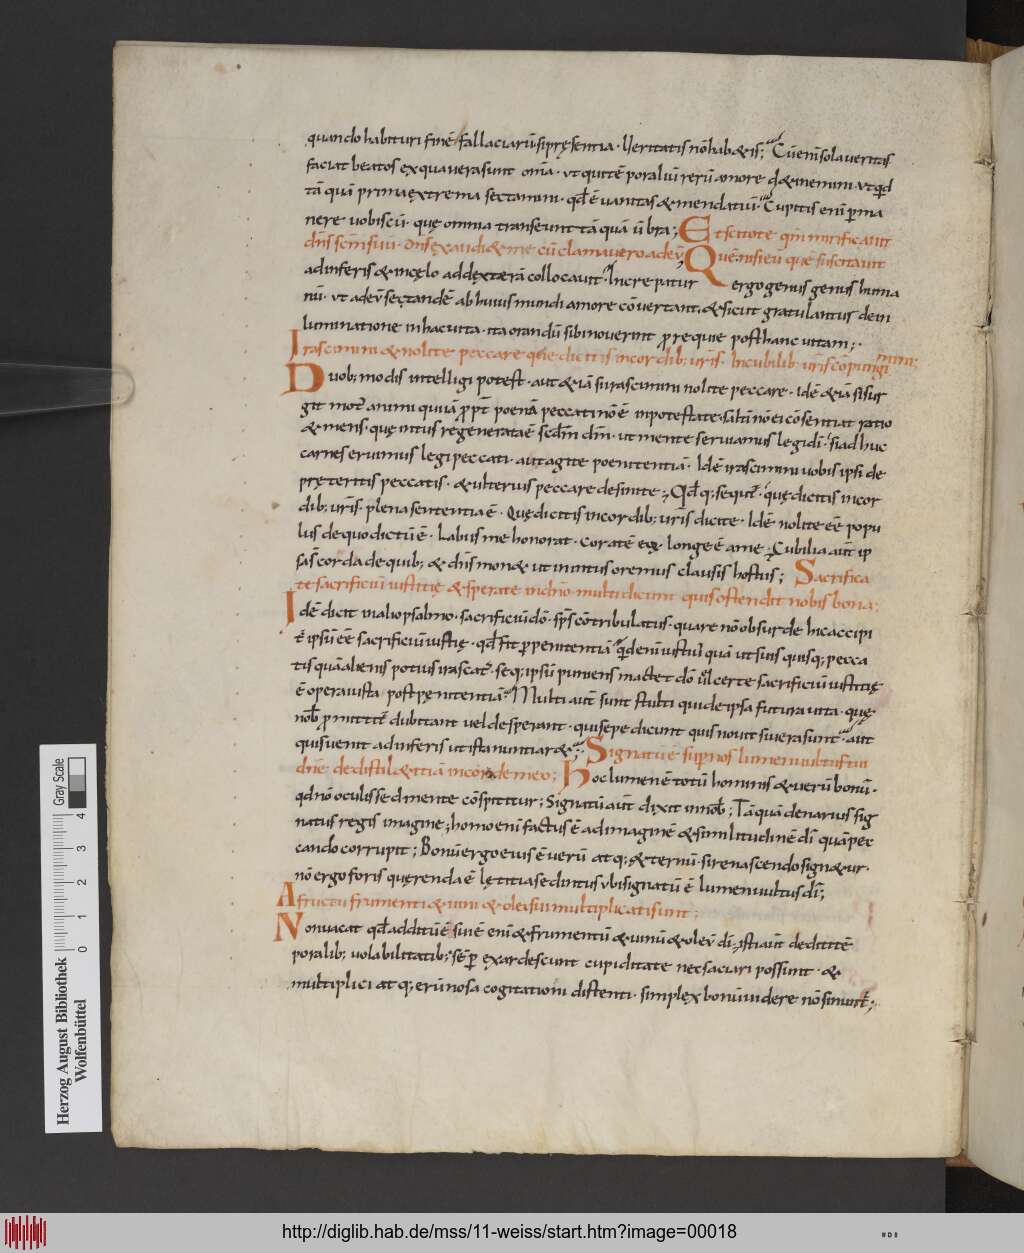 quando habituri finē fallaciarū si pręsentia · Veritatis nō hab&is; Cū enī sola veritas
faciat beatos ex qua vera sunt om̄a · ut quitē poraliū rerū amore q̄ & inemini · ut qd
tā quā prima extrema sectamini · qd ē vanitas & mendatiū · Cupitis enī p̄ma
nere vobiscū · quę omnia transeunt tā quā ūbra; Et scitote qm̄ mirificavit
dn̄s sc̄m suū · dn̄s exaudi& me cū clamavero ad eū; Quē nisi eū quē suscitavit
ad inferis & in cęlo ad dexterā collocavit · Increpatur ergo genus huma
nū · ut ad eū se tandē ab huius mundi amore cōvertant · & sicut gratulantur de in
luminatione in hac vita · ita orandū sibi noverint pro requie post hanc vitam;
Irascimini & nolite peccare quę dicitis in cordib; vr̄is · In cubilib; vr̄is cōpungi
mini;
Duob; modis intelligi potest · aut &iā si irascimini nolite peccare · idē &iā si sur
git mot; animi qui iā ppt poenā peccati nō ē in potestate · saltī nō ei cōsentiat ratio
& mens · quę intus regenerata ē scdm̄ dm̄ · ut mente serviamus legi dī · si adhuc
carne servimus legi peccati · aut agite poenitentiā · Idē irascimini vobis ipsi de
pręteritis peccatis · & ulterius peccare desinite; Qd q; sequt̄ · quę dicitis in cor
dib; vr̄is · plena sententia ē · Quę dicitis in cordib; vr̄is dicite · Idē nolite eē popu
lus de quo dictū ē · Labiis me honorat · cor atē eoꝝ longe ē a me; Cubilia aūt ip
sa s̄ corda de quib; & dn̄s mon& ut in intus oremus clausis hostiis; Sacrifica
te sacrificiū iustitię & sperate in dn̄o multi dicunt quis ostendit nobis bona;
Idē dicit in alio psalmo · sacrificiū dō · sps̄ cōtribulatus · quare nō absurde hic accipi
t̄ ipsū eē sacrificiū iustitię · qd fit p̄ penitentiā · Quid enī iustiū quā ut suis quisq; pecca
tis quā alienis potius irascat̄ · seq; ipsū puniens mactet dō vl certe sacrificiū iustitię
ē opera iusta post penitentiā · Multi aūt sunt stulti qui de ipsa futura vita · quę
nob̄ p̄mittit̄ dubitant vel desperant · qui sępe dicunt quis novit si vera sunt · aut
quis venit ad inferis ut ista nuntiar&; Signatū ē sup̄ nos lumen vultus tui
dn̄e dedisti lętitiā in corde meo; Hoc lumen ē totū hominis & verū bonū ·
qd nō oculis sed mente cōspicitur; Signatū aūt dixit in nob̄; Tā quā denarius sig
natur regis imagine; homo enī factus ē ad imaginē & similitudinē dī quā pec
cando corrupit; Bonū ergo eius ē verū atq; &ternū · si renascendo sign&ur ·
nō ergo foris quęrenda ē lętitia sed intus ubi signatū ē lumen vultus dī;
A fructu frumenti & vini & olei sui multiplicati sunt;
Non vacat qd additū ē sui · ē enī & frumentū & vinū & oleū dī · isti aūt dediti tē
poralib; volabilitatib; sēp̄ exardescunt cupiditate nec saciari possunt · &
multiplici atq; erūnosa cogitationi distenti · simplex bonū videre nō sinunt̄;
Gray Scale
0 1 2 3 4
Herzog August Bibliothek
Wolfenbüttel
http://diglib.hab.de/mss/11-weiss/start.htm?image=00018